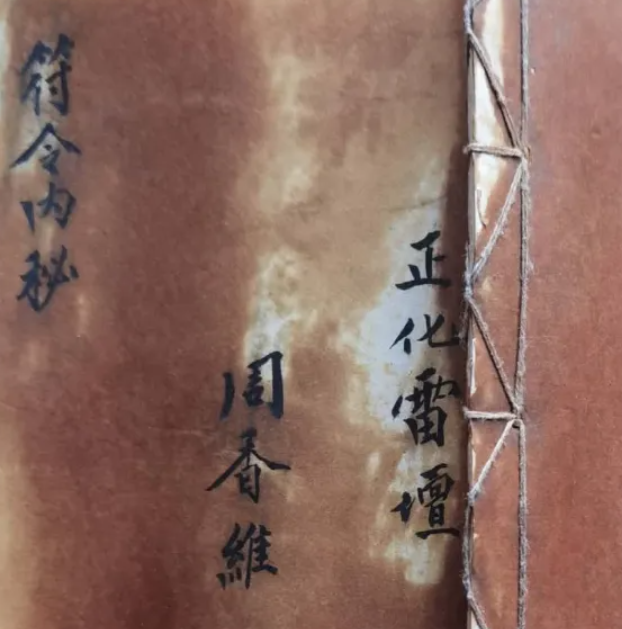 正化雷壇
周香維
符令内秘